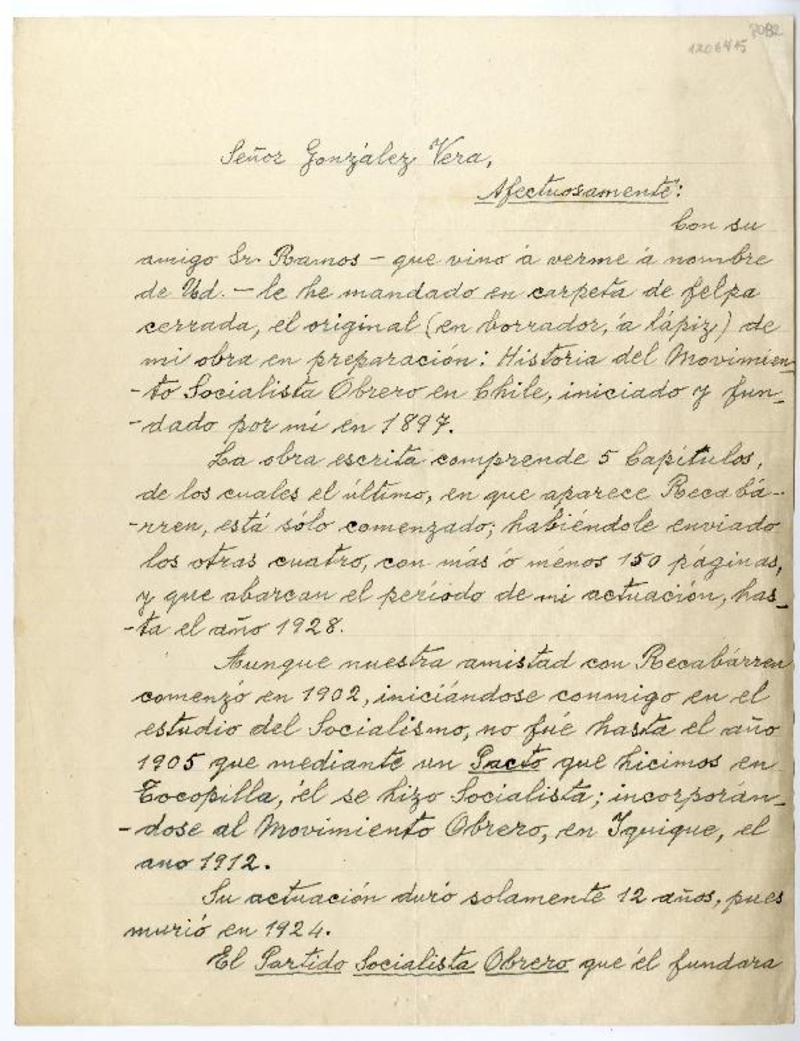 7082
1206415
Señor González Vera,
Afectuosamente:
Con su
amigo Sr. Ramos - que vino á verme á nombre
de Ud. - le he mandado en carpeta de felpa
cerrada, el original (en borrador, á lápiz) de
mi obra en preparación: Historia del Movimien-
-to Socialista Obrero en Chile, iniciado y fun-
-dado por mí en 1897.
La obra escrita comprende 5 Capítulos,
de los cuales el último, en que aparece Recabá-
-rren, está sólo comenzado; habiéndole enviado
los otras cuatro, con más ó ménos 150 páginas,
y que abarcan el período de mi actuación, has-
-ta el año 1928.
Aunque nuestra amistad con Recabárren
comenzó en 1902, iniciándose conmigo en el
estudio del Socialismo, no fué hasta el año
1905 que mediante un Pacto que hicimos en
Tocopilla, él se hizo Socialista; incorporán-
-dose al Movimiento Obrero, en Iquique, el
ano 1912.
Su actuación duró solamente 12 años, pues
murió en 1924.
El Partido Socialista Obrero que él fundara